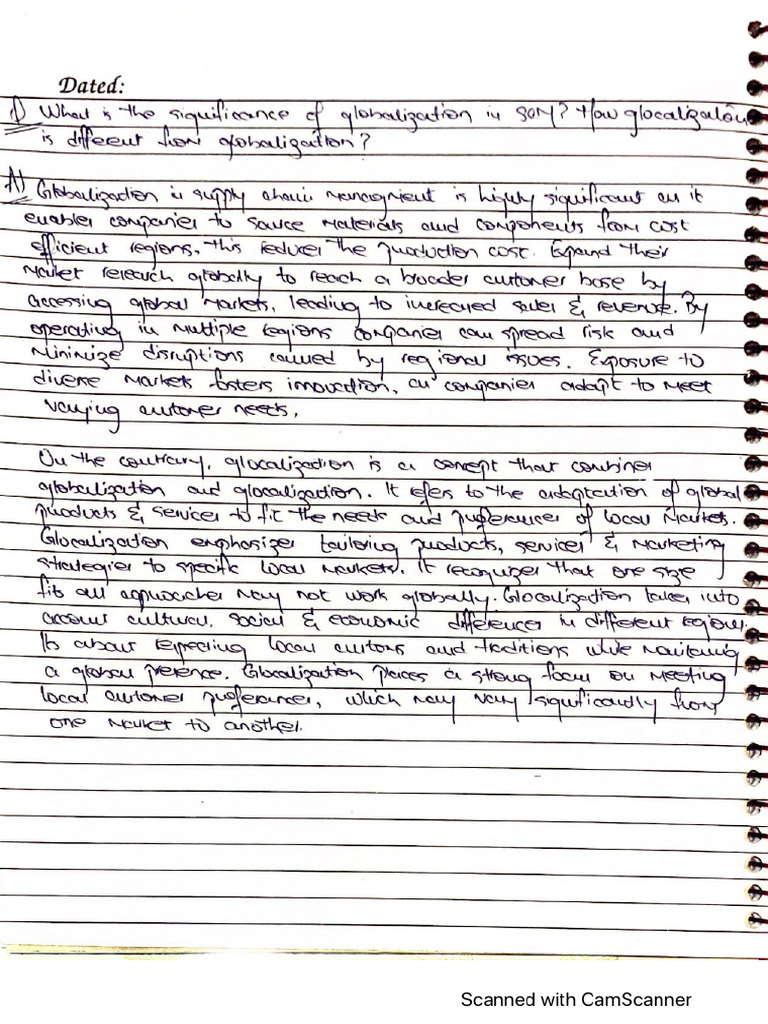 Dated:
1) What is the significance of globalization in SCM? How glocalization
is different from globalization?
A) Globalization in supply chain managment is highly significant as it
enables companies to source materials and components from cost
efficient regions, this reduces the production cost. Expand their
market research globally to reach a broader customer base by
accessing global markets, leading to increased sales & revenue. By
operating in multiple regions companies can spread risk and
minimize disruptions caused by regional issues. Exposure to
diverse markets fosters innovation, as companies adapt to meet
varying customer needs.
On the contrary, glocalization is a concept that combines
globalization and glocalization. It refers to the adaptation of global
products & services to fit the needs and preferences of local markets.
Glocalization emphasizes tailoring products, services & marketing
strategies to specific local markets. It recognizes that one size
fits all approaches may not work globally. Glocalization takes into
account cultural, social & economic differences in different regions.
Its about respecting local customs and traditions while maintaining
a global presence. Glocalization places a strong focus on meeting
local customer preferences, which may vary significantly from
one market to another.
Scanned with CamScanner